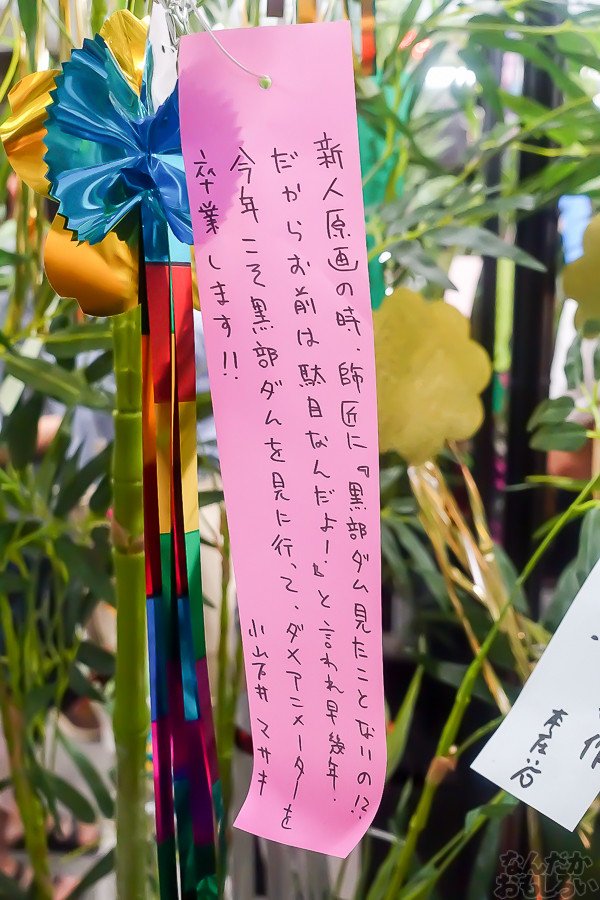 新人原画の時、師匠に『黒部ダム見たことないの!?
だからお前は駄目なんだよー!』と言われ早幾年.
今年こそ黒部ダムを見に行って、ダメアニメーターを
卒業します!!
小山下井 マサキ
本庄谷
なんだか
おもしろい